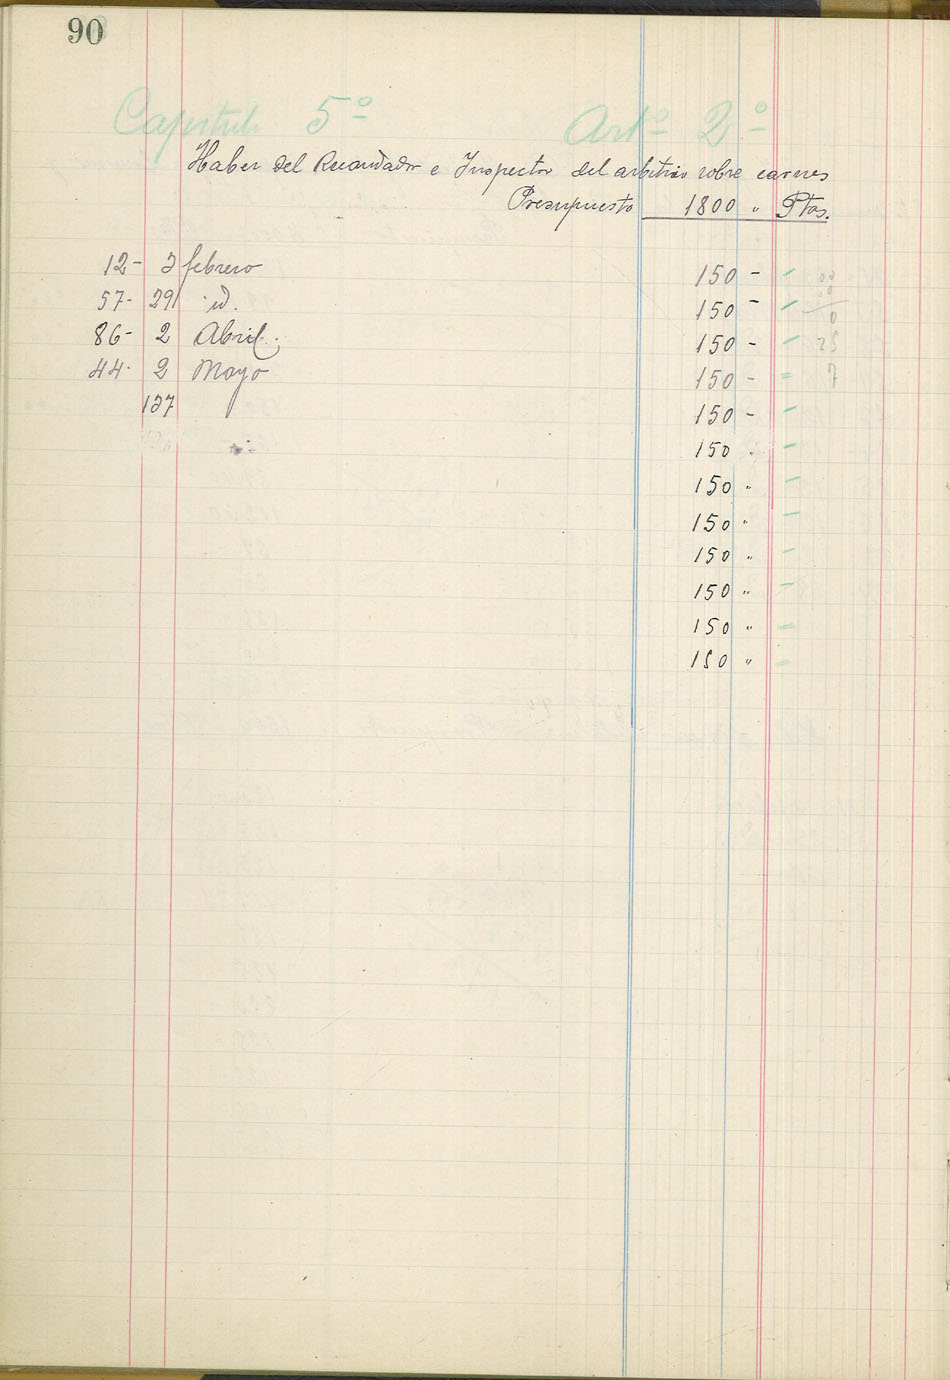 90
Capitulo 5º Artº 2º
Haber del Recaudador e Inspector del arbitrio sobre carnes
Presupuesto 1800 " Ptas.
12- 3 febrero 150 -
57- 29 id. 150 -
86- 2 Abril. 150 -
44- 2 Mayo 150 -
137 150 -
150 "
150 "
150 "
150 "
150 "
150 "
150 "